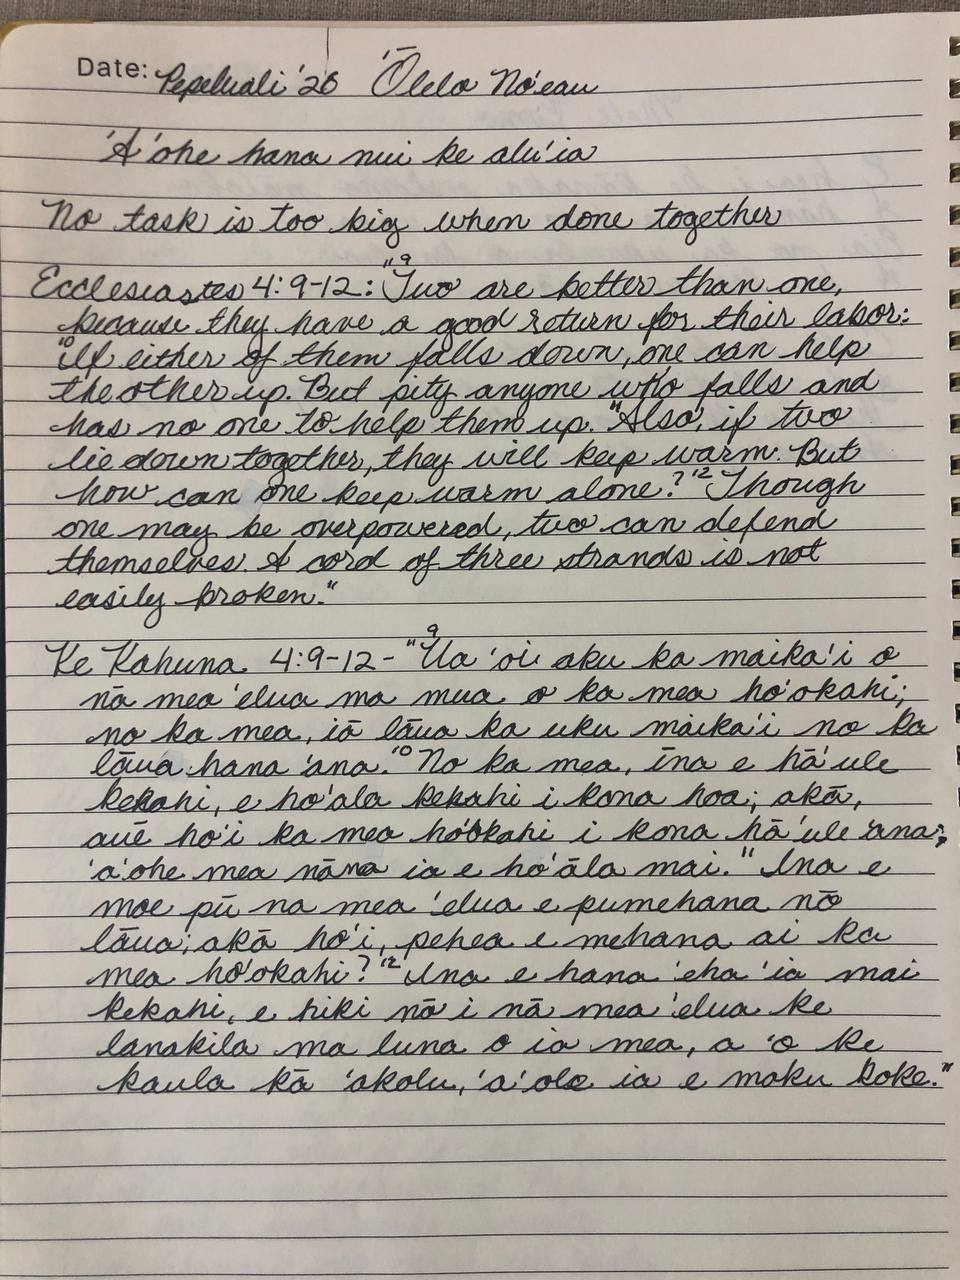 Date: Pepeluali '26 'Ōlelo No'eau
'A'ohe hana nui ke alu'ia
No task is too big when done together
Ecclesiastes 4:9-12: "⁹Two are better than one,
because they have a good return for their labor:
¹⁰If either of them falls down, one can help
the other up. But pity anyone who falls and
has no one to help them up. ¹¹Also, if two
lie down together, they will keep warm. But
how can one keep warm alone? ¹²Though
one may be overpowered, two can defend
themselves. A cord of three strands is not
easily broken."
Ke Kahuna 4:9-12- "⁹Ua 'oi aku ka maika'i o
nā mea 'elua ma mua o ka mea ho'okahi;
no ka mea, iā lāua ka uku maika'i no ka
lāua hana 'ana. ¹⁰No ka mea, īna e hā'ule
kekahi, e ho'ala kekahi i kona hoa; akā,
auē ho'i ka mea ho'okahi i kona hā'ule 'ana;
'a'ohe mea nāna ia e ho'āla mai. ¹¹Ina e
moe pū na mea 'elua e pumehana nō
lāua; akā ho'i, pehea e mehana ai ka
mea ho'okahi? ¹²Ina e hana 'eha 'ia mai
kekahi, e hiki nō i nā mea 'elua ke
lanakila ma luna o ia mea, a 'o ke
kaula kā 'akolu, 'a'ole ia e moku koke."